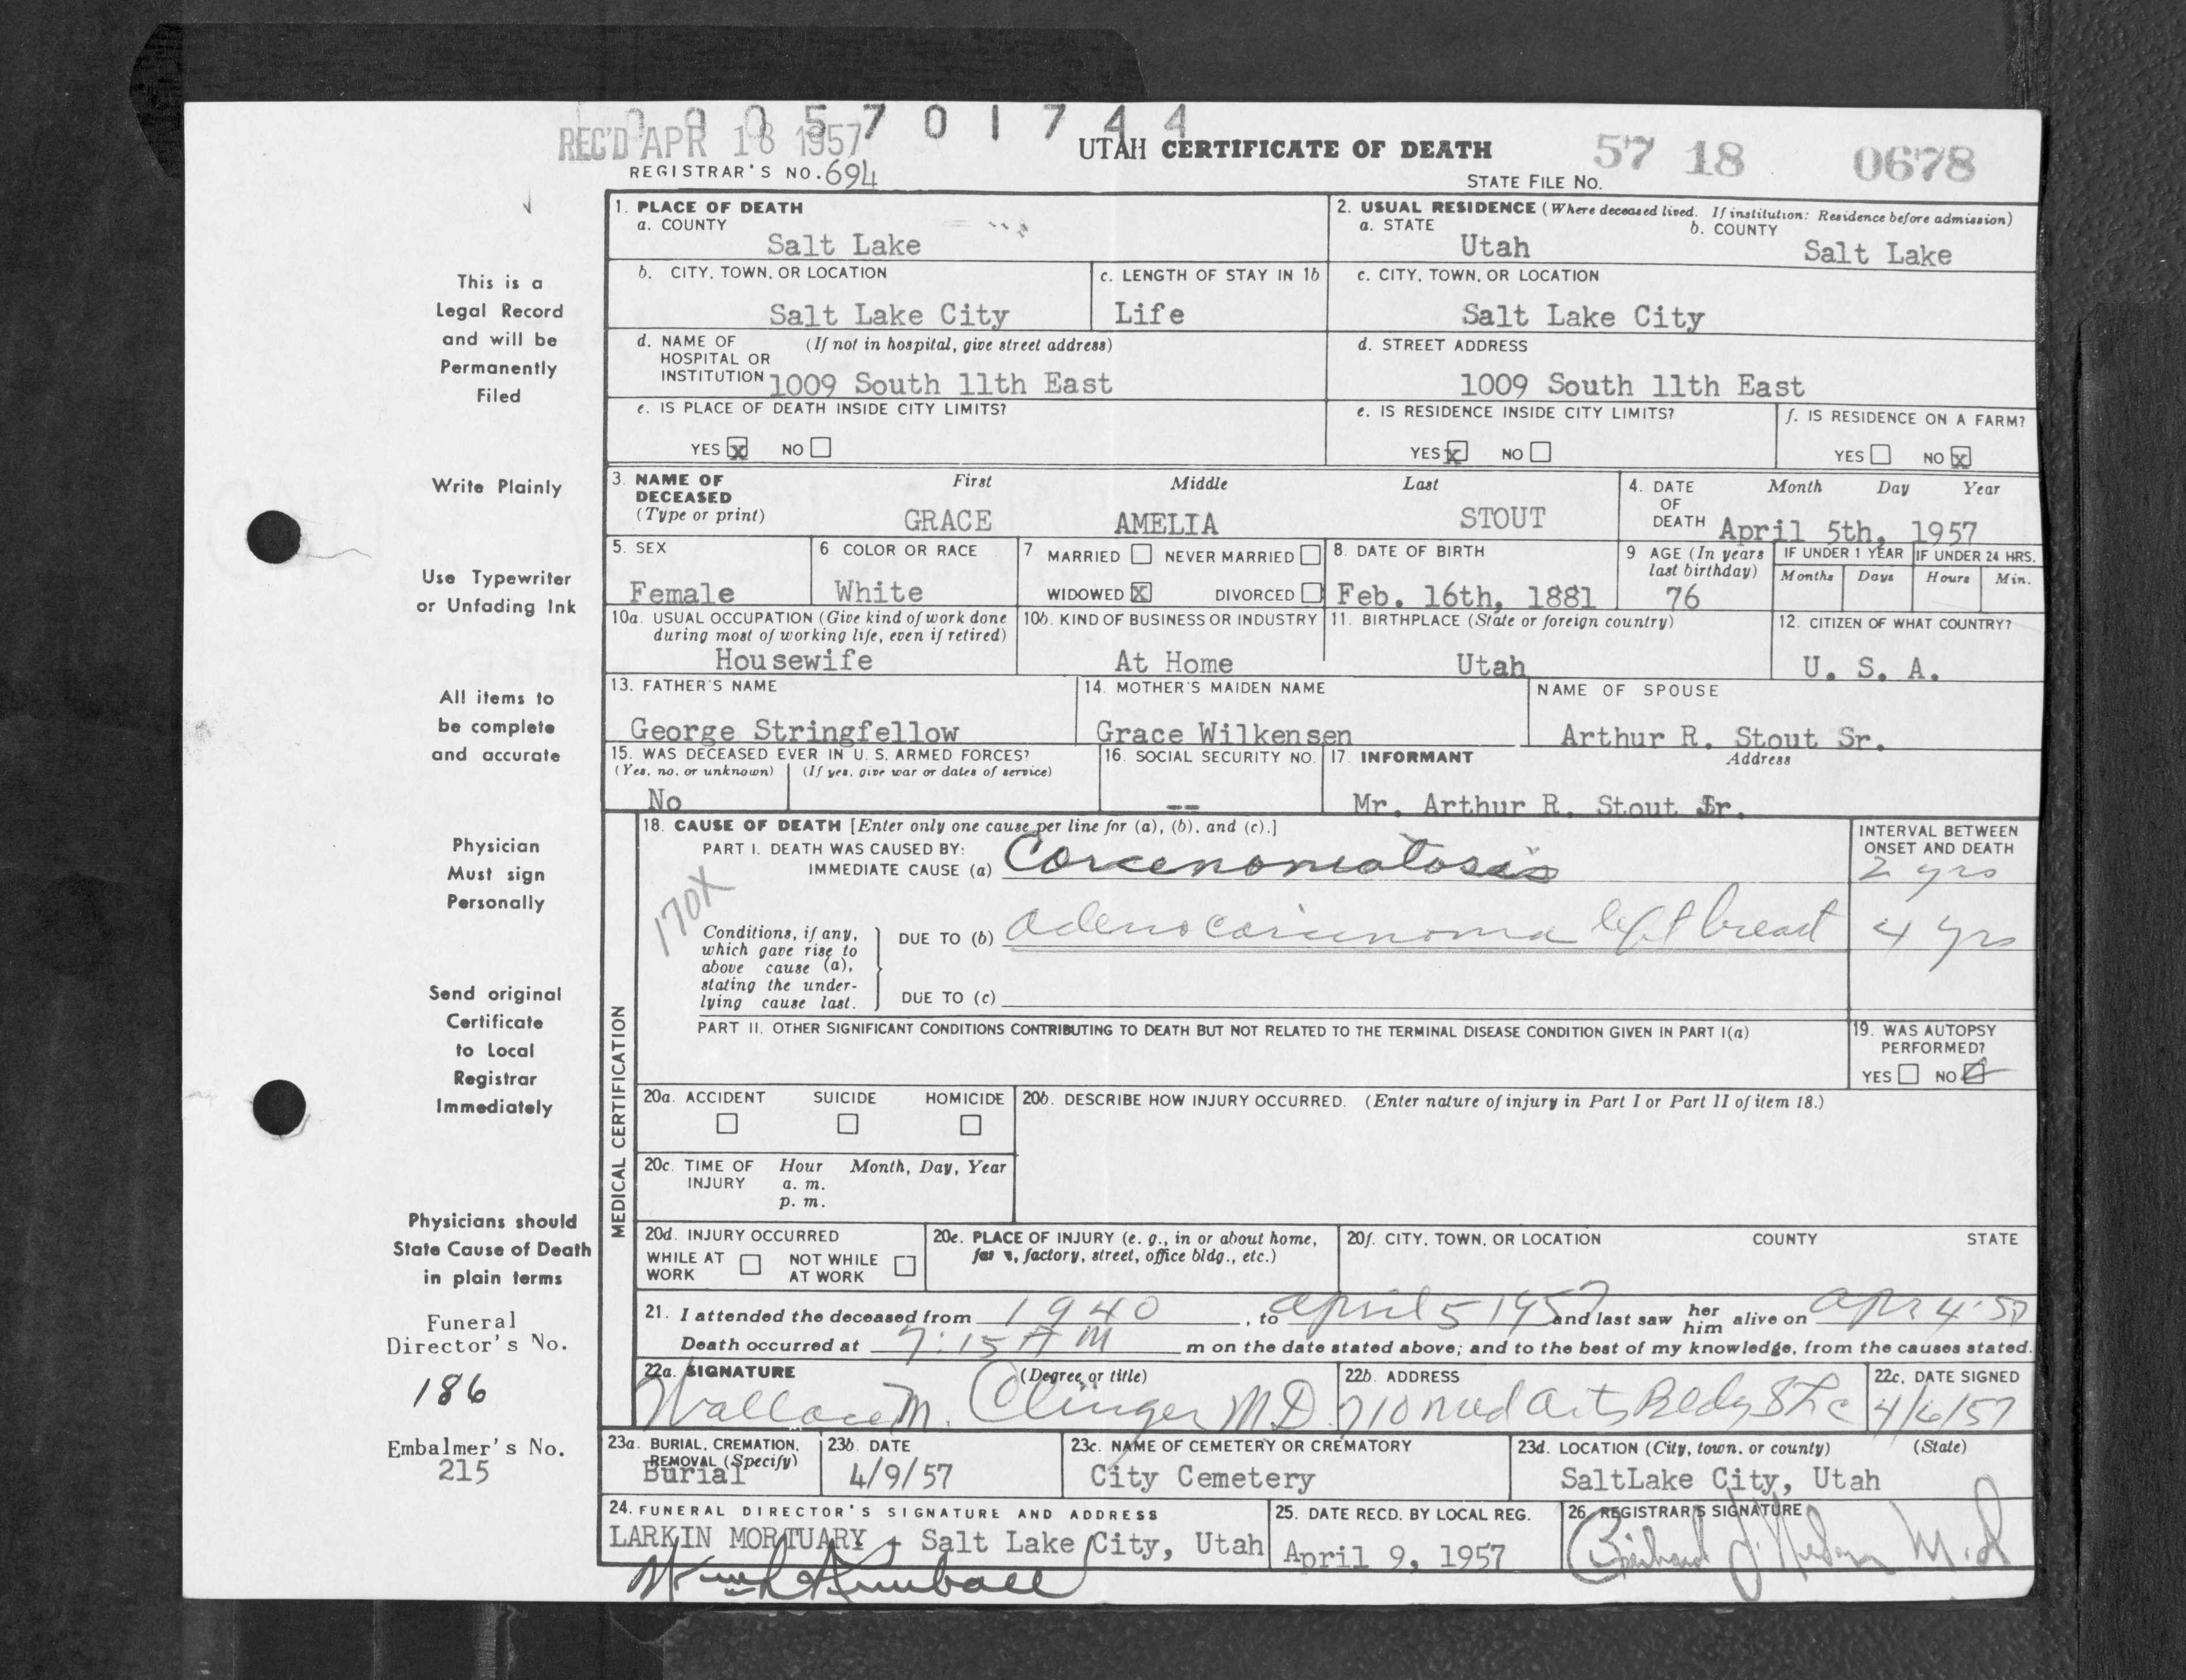 0005701744
REC'D APR 18 1957
UTAH CERTIFICATE OF DEATH
57 18 0678
REGISTRAR'S NO. 694
STATE FILE NO.
This is a
Legal Record
and will be
Permanently
Filed
Write Plainly
Use Typewriter
or Unfading Ink
All items to
be complete
and accurate
Physician
Must sign
Personally
Send original
Certificate
to Local
Registrar
Immediately
Physicians should
State Cause of Death
in plain terms
Funeral
Director's No.
186
Embalmer's No.
215
1. PLACE OF DEATH
a. COUNTY
Salt Lake
2. USUAL RESIDENCE (Where deceased lived. If institution: Residence before admission)
a. STATE
Utah
b. COUNTY
Salt Lake
b. CITY, TOWN, OR LOCATION
Salt Lake City
c. LENGTH OF STAY IN 1b
Life
c. CITY, TOWN, OR LOCATION
Salt Lake City
d. NAME OF HOSPITAL OR INSTITUTION
(If not in hospital, give street address)
1009 South 11th East
d. STREET ADDRESS
1009 South 11th East
e. IS PLACE OF DEATH INSIDE CITY LIMITS?
YES x NO
e. IS RESIDENCE INSIDE CITY LIMITS?
YES x NO
f. IS RESIDENCE ON A FARM?
YES NO x
3. NAME OF DECEASED (Type or print)
First Middle Last
GRACE AMELIA STOUT
4. DATE OF DEATH
Month Day Year
April 5th, 1957
5. SEX
Female
6 COLOR OR RACE
White
7 MARRIED NEVER MARRIED
WIDOWED X DIVORCED
8. DATE OF BIRTH
Feb. 16th, 1881
9 AGE (In years last birthday)
76
IF UNDER 1 YEAR
Months Days
IF UNDER 24 HRS.
Hours Min.
10a. USUAL OCCUPATION (Give kind of work done
during most of working life, even if retired)
Housewife
10b. KIND OF BUSINESS OR INDUSTRY
At Home
11. BIRTHPLACE (State or foreign country)
Utah
12. CITIZEN OF WHAT COUNTRY?
U. S. A.
13. FATHER'S NAME
George Stringfellow
14. MOTHER'S MAIDEN NAME
Grace Wilkensen
NAME OF SPOUSE
Arthur R. Stout Sr.
15. WAS DECEASED EVER IN U. S. ARMED FORCES?
(Yes, no, or unknown) (If yes, give war or dates of service)
No
16. SOCIAL SECURITY NO.
--
17. INFORMANT Address
Mr. Arthur R. Stout Jr.
MEDICAL CERTIFICATION
18. CAUSE OF DEATH [Enter only one cause per line for (a), (b), and (c).]
PART I. DEATH WAS CAUSED BY:
IMMEDIATE CAUSE (a) Carcenomatosis
INTERVAL BETWEEN
ONSET AND DEATH
2 yrs
170X
Conditions, if any,
which gave rise to
above cause (a),
stating the under-
lying cause last.
DUE TO (b) adenocarcinoma left breast
4 yrs
DUE TO (c)
PART II. OTHER SIGNIFICANT CONDITIONS CONTRIBUTING TO DEATH BUT NOT RELATED TO THE TERMINAL DISEASE CONDITION GIVEN IN PART I(a)
19. WAS AUTOPSY
PERFORMED?
YES NO
20a. ACCIDENT SUICIDE HOMICIDE
20b. DESCRIBE HOW INJURY OCCURRED. (Enter nature of injury in Part I or Part II of item 18.)
20c. TIME OF INJURY
Hour Month, Day, Year
a. m.
p. m.
20d. INJURY OCCURRED
WHILE AT WORK NOT WHILE AT WORK
20e. PLACE OF INJURY (e. g., in or about home,
farm, factory, street, office bldg., etc.)
20f. CITY, TOWN, OR LOCATION COUNTY STATE
21. I attended the deceased from 1940, to april 5 1957 and last saw her him alive on apr 4-57
Death occurred at 7:15 A M m on the date stated above; and to the best of my knowledge, from the causes stated.
22a. SIGNATURE (Degree or title)
Wallace M. Clinger MD
22b. ADDRESS
710 Med Arts Bldg SLC
22c. DATE SIGNED
4/6/57
23a. BURIAL, CREMATION,
REMOVAL (Specify)
Burial
23b. DATE
4/9/57
23c. NAME OF CEMETERY OR CREMATORY
City Cemetery
23d. LOCATION (City, town, or county) (State)
SaltLake City, Utah
24. FUNERAL DIRECTOR'S SIGNATURE AND ADDRESS
LARKIN MORTUARY - Salt Lake City, Utah
Kimball
25. DATE RECD. BY LOCAL REG.
April 9, 1957
26. REGISTRAR'S SIGNATURE
M.D